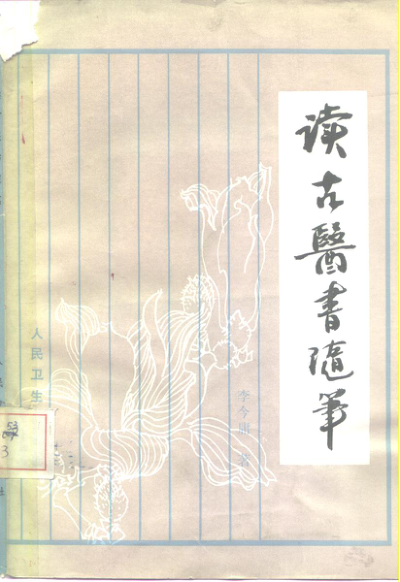 读古醫書随筆
李今庸 著
人民卫生